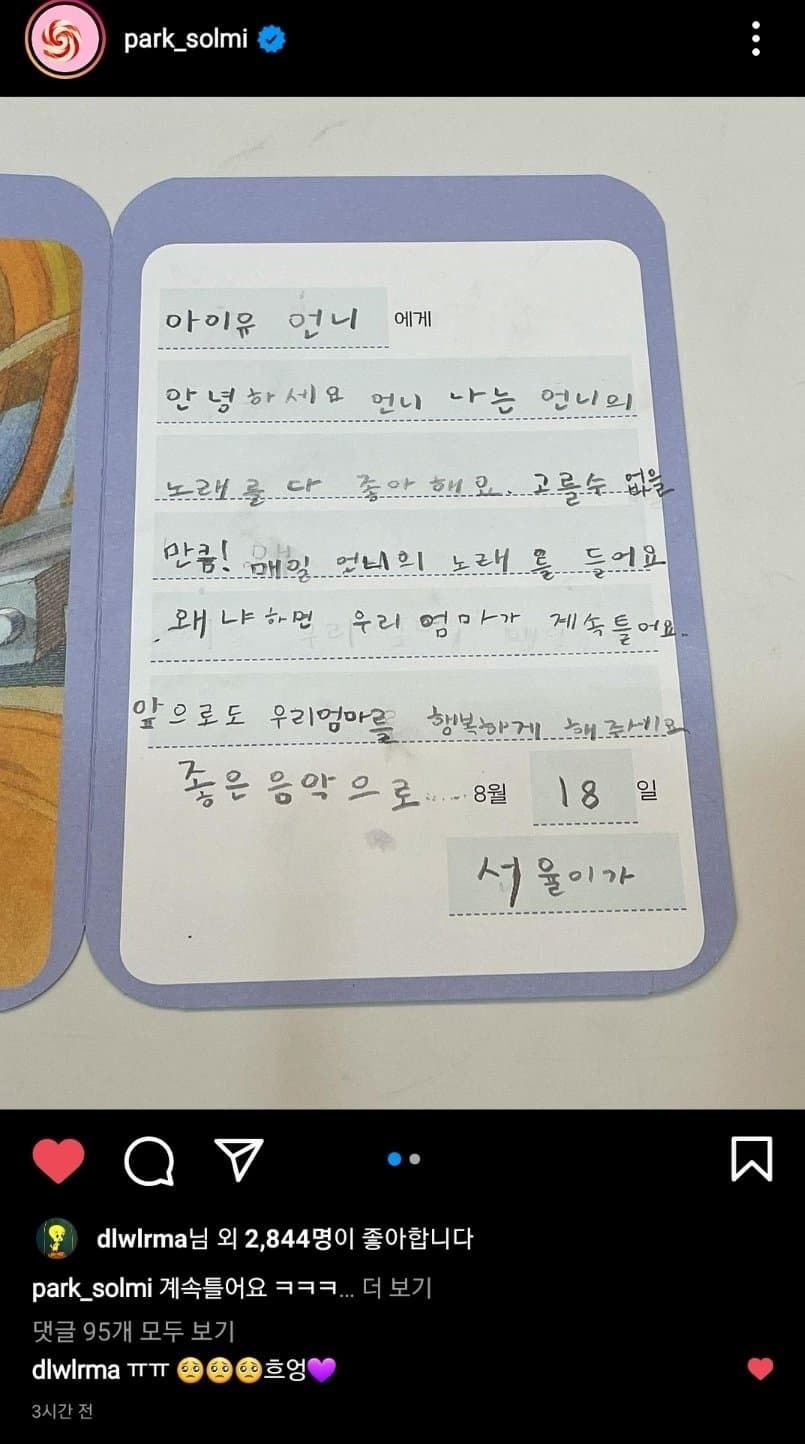 park_solmi
아이유 언니 에게
안녕하세요 언니 나는 언니의
노래를 다 좋아해요. 고를수 없을
만큼! 매일 언니의 노래를 들어요
왜냐하면 우리 엄마가 계속틀어요.
앞으로도 우리엄마를 행복하게 해주세요
좋은 음악으로...... 8월 18 일
서율이가
dlwlrma님 외 2,844명이 좋아합니다
park_solmi 계속틀어요 ㅋㅋㅋ... 더 보기
댓글 95개 모두 보기
dlwlrma ㅠㅠ 🥺🥺🥺흐엉💜
3시간 전